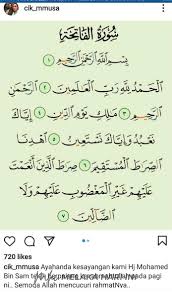 cik_mmusa
سُورَةُ الفَاتِحَةِ
بِسْمِ اللَّهِ الرَّحْمَٰنِ الرَّحِيمِ ١
الْحَمْدُ لِلَّهِ رَبِّ الْعَالَمِينَ ٢ الرَّحْمَٰنِ
الرَّحِيمِ ٣ مَالِكِ يَوْمِ الدِّينِ ٤ إِيَّاكَ
نَعْبُدُ وَإِيَّاكَ نَسْتَعِينُ ٥ اهْدِنَا
الصِّرَاطَ الْمُسْتَقِيمَ ٦ صِرَاطَ الَّذِينَ أَنْعَمْتَ
عَلَيْهِمْ غَيْرِ الْمَغْضُوبِ عَلَيْهِمْ وَلَا
الضَّالِّينَ ٧
720 likes
cik_mmusa Ayahanda kesayangan kami Hj Mohamed
Bin Sam pagi
ni.. Semoga Allah mencucuri rahmatNya..